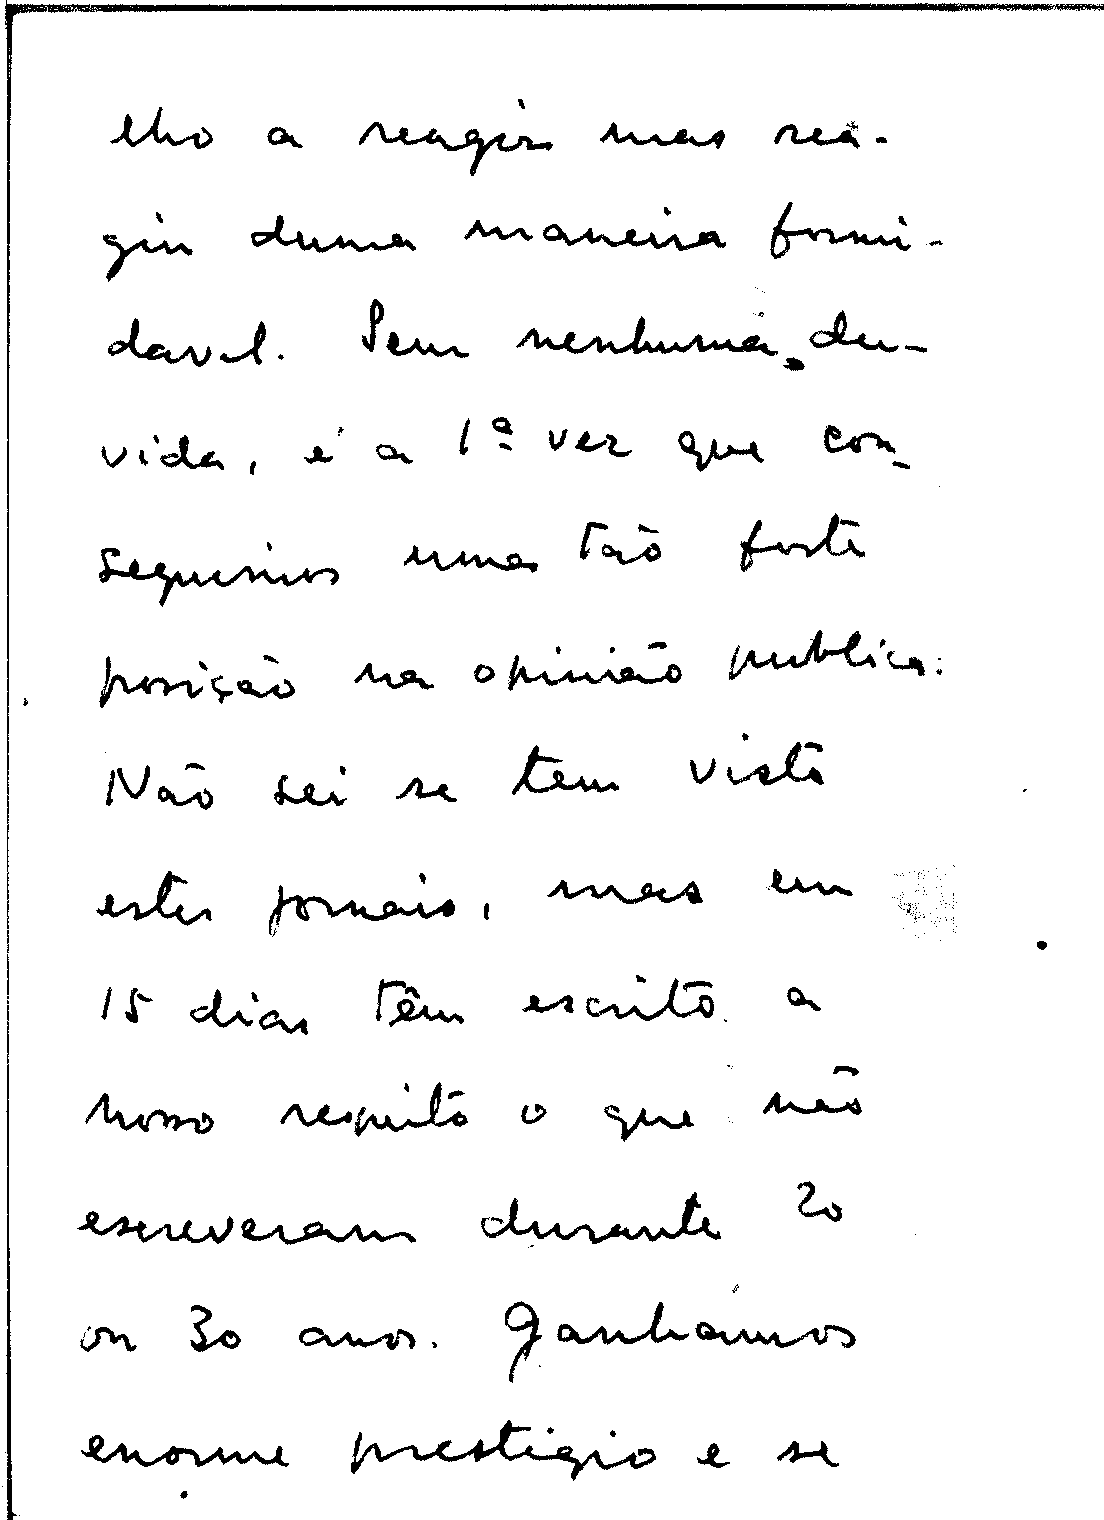 lho a reagir mas rea-
giu duma maneira formi-
davel. Sem nenhuma du-
vida, é a 1ª vez que con-
seguimos uma tão forte
posição na opinião publica.
Não sei se tem visto
estes jornais, mas em
15 dias têm escrito a
nosso respeito o que não
escreveram durante 20
ou 30 anos. Ganhámos
enorme prestigio e se